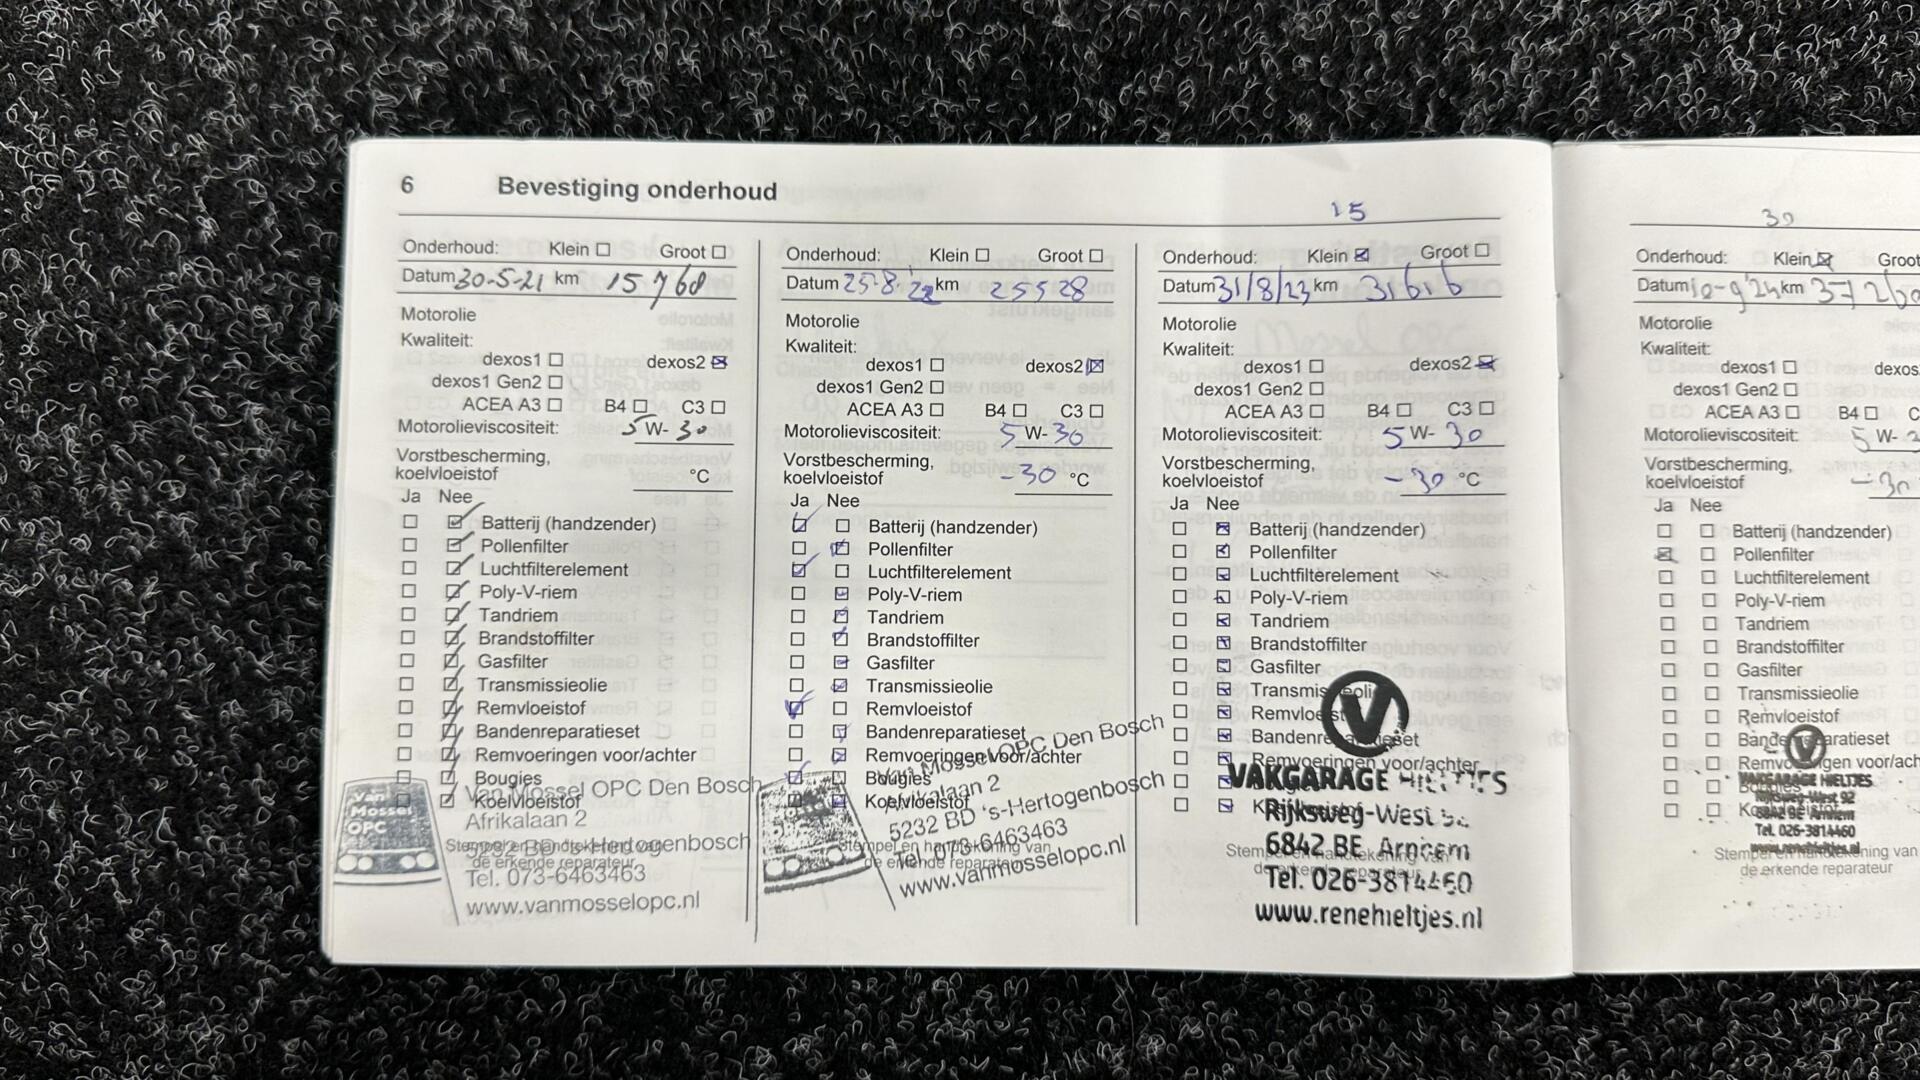 6 Bevestiging onderhoud
15
Onderhoud: Klein Groot
Datum 30-5-21 km 15760
Motorolie
Kwaliteit:
dexos1 dexos2
dexos1 Gen2
ACEA A3 B4 C3
Motorolieviscositeit: 5 W- 30
Vorstbescherming,
koelvloeistof °C
Ja Nee
Batterij (handzender)
Pollenfilter
Luchtfilterelement
Poly-V-riem
Tandriem
Brandstoffilter
Gasfilter
Transmissieolie
Remvloeistof
Bandenreparatieset
Remvoeringen voor/achter
Bougies
Koelvloeistof
Stempel en handtekening van
de erkende reparateur
Van
Mossel
OPC
Van Mossel OPC Den Bosch
Afrikalaan 2
5232 BD 's-Hertogenbosch
Tel. 073-6463463
www.vanmosselopc.nl
Onderhoud: Klein Groot
Datum 25-8-'22 km 25528
Motorolie
Kwaliteit:
dexos1 dexos2
dexos1 Gen2
ACEA A3 B4 C3
Motorolieviscositeit: 5 W- 30
Vorstbescherming,
koelvloeistof -30 °C
Ja Nee
Batterij (handzender)
Pollenfilter
Luchtfilterelement
Poly-V-riem
Tandriem
Brandstoffilter
Gasfilter
Transmissieolie
Remvloeistof
Bandenreparatieset
Remvoeringen voor/achter
Bougies
Koelvloeistof
Stempel en handtekening van
de erkende reparateur
Van Mossel OPC Den Bosch
Afrikalaan 2
5232 BD 's-Hertogenbosch
Tel. 073-6463463
www.vanmosselopc.nl
Onderhoud: Klein Groot
Datum 31/8/23 km 31616
Motorolie
Kwaliteit:
dexos1 dexos2
dexos1 Gen2
ACEA A3 B4 C3
Motorolieviscositeit: 5 W- 30
Vorstbescherming,
koelvloeistof -30 °C
Ja Nee
Batterij (handzender)
Pollenfilter
Luchtfilterelement
Poly-V-riem
Tandriem
Brandstoffilter
Gasfilter
Transmissieolie
Remvloeistof
Bandenreparatieset
Remvoeringen voor/achter
Stempel en handtekening van
V
VAKGARAGE HIELTJES
Rijksweg-West 92
6842 BE Arnhem
Tel. 026-3814460
www.renehieltjes.nl
30
Onderhoud: Klein Groot
Datum 10-9'24 km 37260
Motorolie
Kwaliteit:
dexos1 dexos
dexos1 Gen2
ACEA A3 B4 C
Motorolieviscositeit: 5 W- 3
Vorstbescherming,
koelvloeistof -30
Ja Nee
Batterij (handzender)
Pollenfilter
Luchtfilterelement
Poly-V-riem
Tandriem
Brandstoffilter
Gasfilter
Transmissieolie
Remvloeistof
Bandenreparatieset
Remvoeringen voor/ach
Bougies
Koelvloeistof
Stempel en handtekening van
de erkende reparateur
V
VAKGARAGE HIELTJES
Rijksweg-West 92
6842 BE Arnhem
Tel. 026-3814460
www.renehieltjes.nl